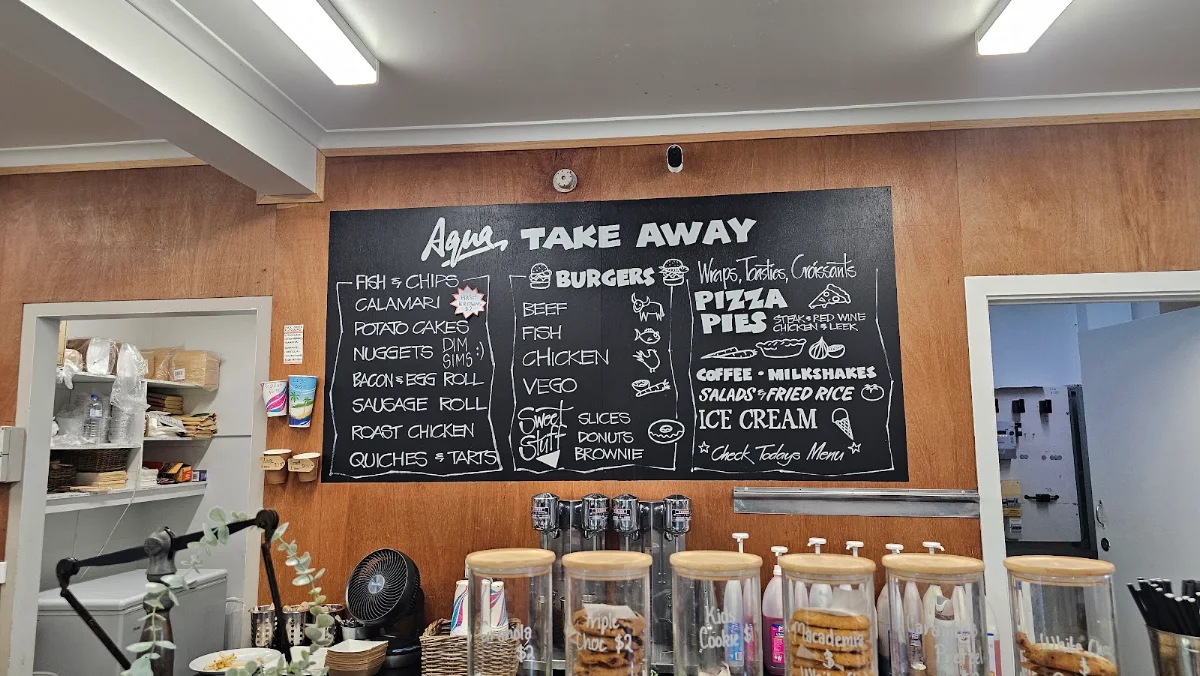 Aqua TAKE AWAY
FISH & CHIPS
CALAMARI
POTATO CAKES
NUGGETS DIM
SIMS :)
BACON & EGG ROLL
SAUSAGE ROLL
ROAST CHICKEN
QUICHES & TARTS
BURGERS
BEEF
FISH
CHICKEN
VEGO
Sweet
Stuff
SLICES
DONUTS
BROWNIE
Wraps, Toasties, Croissants
PIZZA
PIES
STEAK & RED WINE
CHICKEN & LEEK
COFFEE · MILKSHAKES
SALADS & FRIED RICE
ICE CREAM
Check Todays Menu
$2
Triple
Choc $2
Kids
Cookie
Macadamia
$